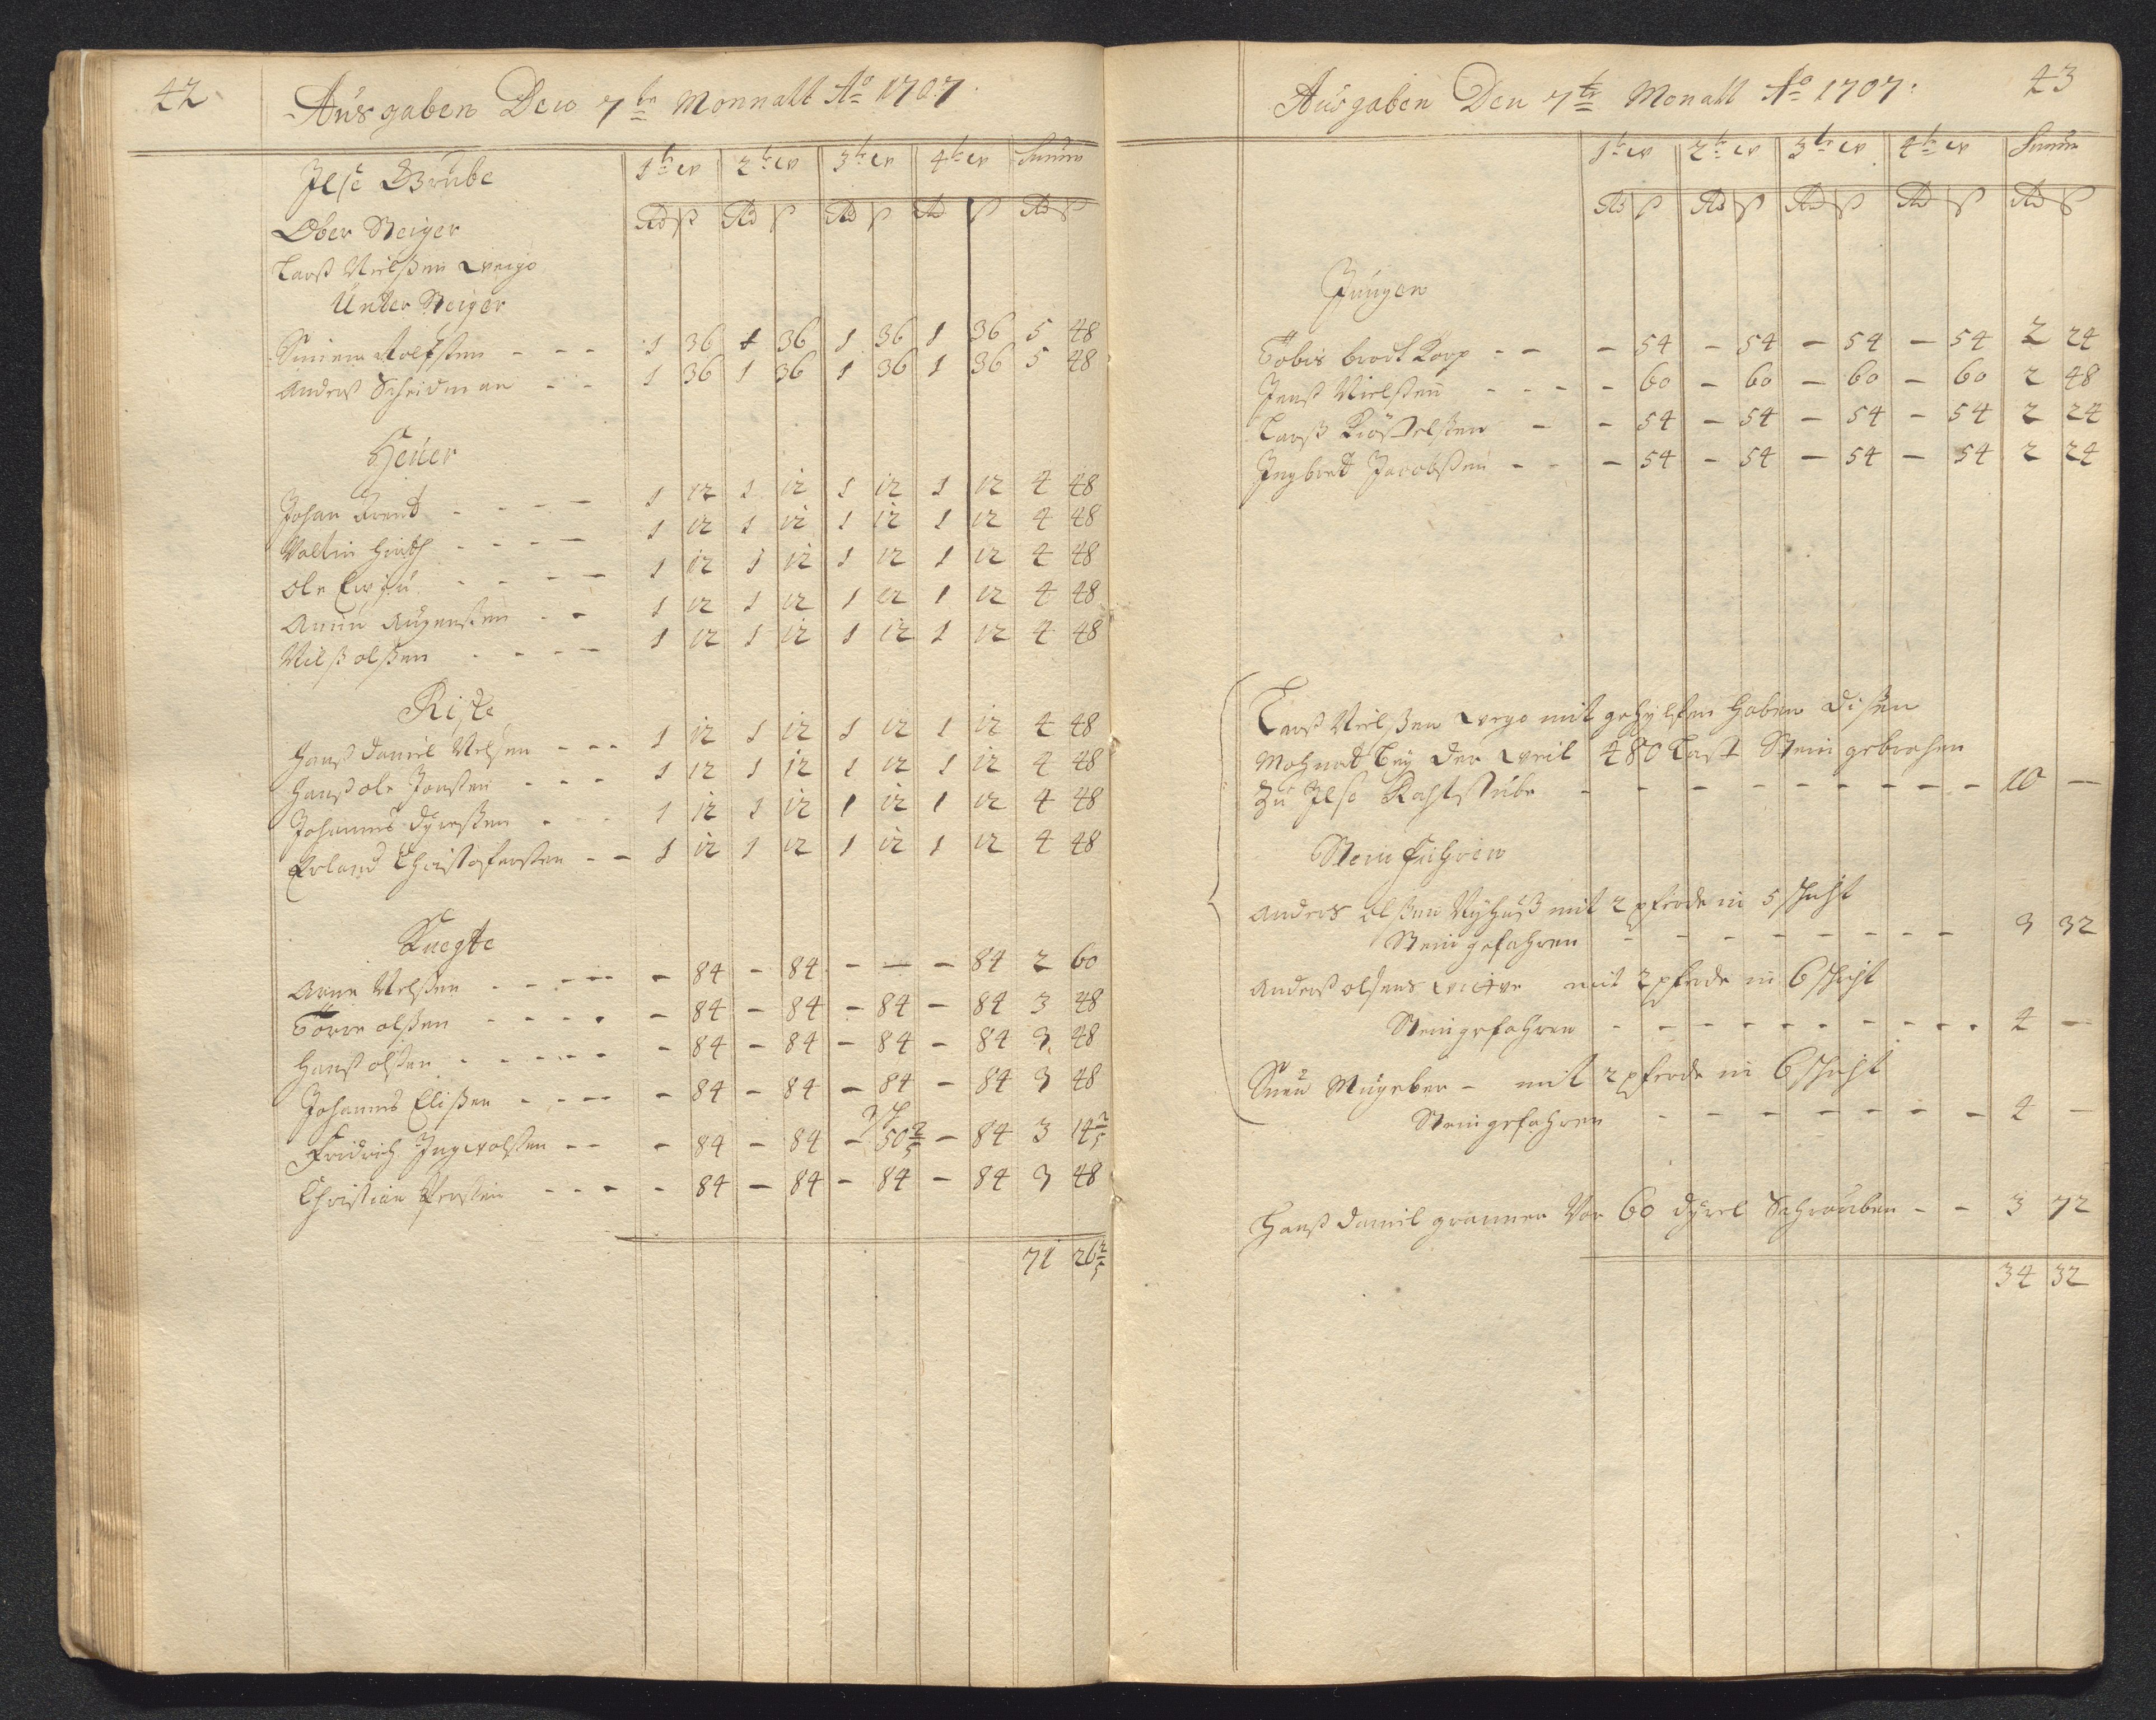 42
Ausgaben Den 7te Monnatt Ao 1707.
Ilse Grube
1te w 2te w 3te w 4te w Summ
Rd ß Rd ß Rd ß Rd ß Rd ß
Ober Steiger
Larß Nielßen
Unter Steiger
Simen Rolfßen - - - 1 36 1 36 1 36 1 36 5 48
Anders Scheidman - - 1 36 1 36 1 36 1 36 5 48
Heuer
Johan - - - - 1 12 1 12 1 12 1 12 4 48
Valtin - - - - 1 12 1 12 1 12 1 12 4 48
Ole - - - - 1 12 1 12 1 12 1 12 4 48
- - 1 12 1 12 1 12 1 12 4 48
Nilß olßen - - - - 1 12 1 12 1 12 1 12 4 48
Hanß Daniel Nelsen - - - 1 12 1 12 1 12 1 12 4 48
Hanß ole Jonßen - - - 1 12 1 12 1 12 1 12 4 48
Johannes - - - 1 12 1 12 1 12 1 12 4 48
Erland Christoferßen - - 1 12 1 12 1 12 1 12 4 48
Knegte
Arne Nelßen - - - - - 84 - 84 - - - 84 2 60
Törre olßen - - - - - 84 - 84 - 84 - 84 3 48
Hanß olßen - - - - - - 84 - 84 - 84 - 84 3 48
Johannes Elißen - - - - - 84 - 84 - 84 - 84 3 48
Fridrich Ingwolßen - - - 84 - 84 - 50 2/5 - 84 3 14 2/5
Christian Perßen - - - - 84 - 84 - 84 - 84 3 48
71 26 2/5
43
Ausgaben Den 7te Monatt Ao 1707:
1te w 2te w 3te w 4te w Summ
Rd ß Rd ß Rd ß Rd ß Rd ß
Jungen
Töbis - - - 54 - 54 - 54 - 54 2 24
Jenß Nielßen - - - - 60 - 60 - 60 - 60 2 48
Larß - - 54 - 54 - 54 - 54 2 24
Ingbret Jacobßen - - - 54 - 54 - 54 - 54 2 24
Larß Nielßen mit gehylfen haben dißen
Mohnat bey der weil 480 Last Stein gebrochen
Zu Ilse - - - - - - - - 10 -
Stein Fuhren
Anders olßen mit 2 pferde in 5 schicht
Stein gefahren - - - - - - - - 3 32
Anderß olsens mit 2 pferde in 6 schicht
Stein gefahren - - - - - - - - - 4 -
- mit 2 pferde in 6 schicht
Stein gefahren - - - - - - - - 4 -
Hanß Daniel Vor 60 Schrauben - - 3 72
34 32